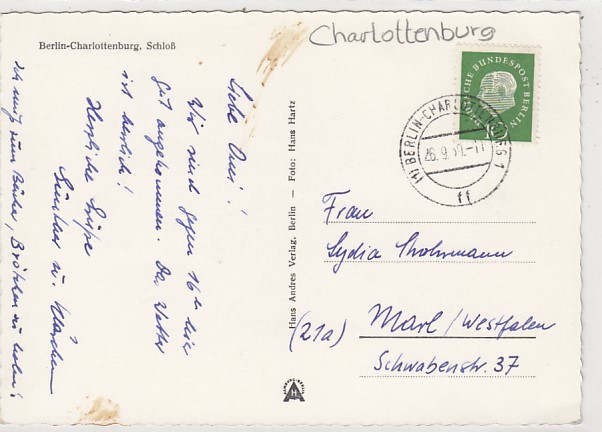 Berlin-Charlottenburg, Schloß
Charlottenburg
DEUTSCHE BUNDESPOST BERLIN
10
(1) BERLIN-CHARLOTTENBURG 1
26.9.59.-11
ff
Liebe Omi!
Wir sind gegen 16h hier
gut angekommen. Das Wetter
ist herrlich!
Herzliche Grüße
Günther u. Klärchen
Ich muß zum Bäcker, Brötchen zu holen!
Hans Andres Verlag, Berlin — Foto: Hans Hartz
Frau
Lydia
(21a) Marl/Westfalen
Schwabenstr. 37